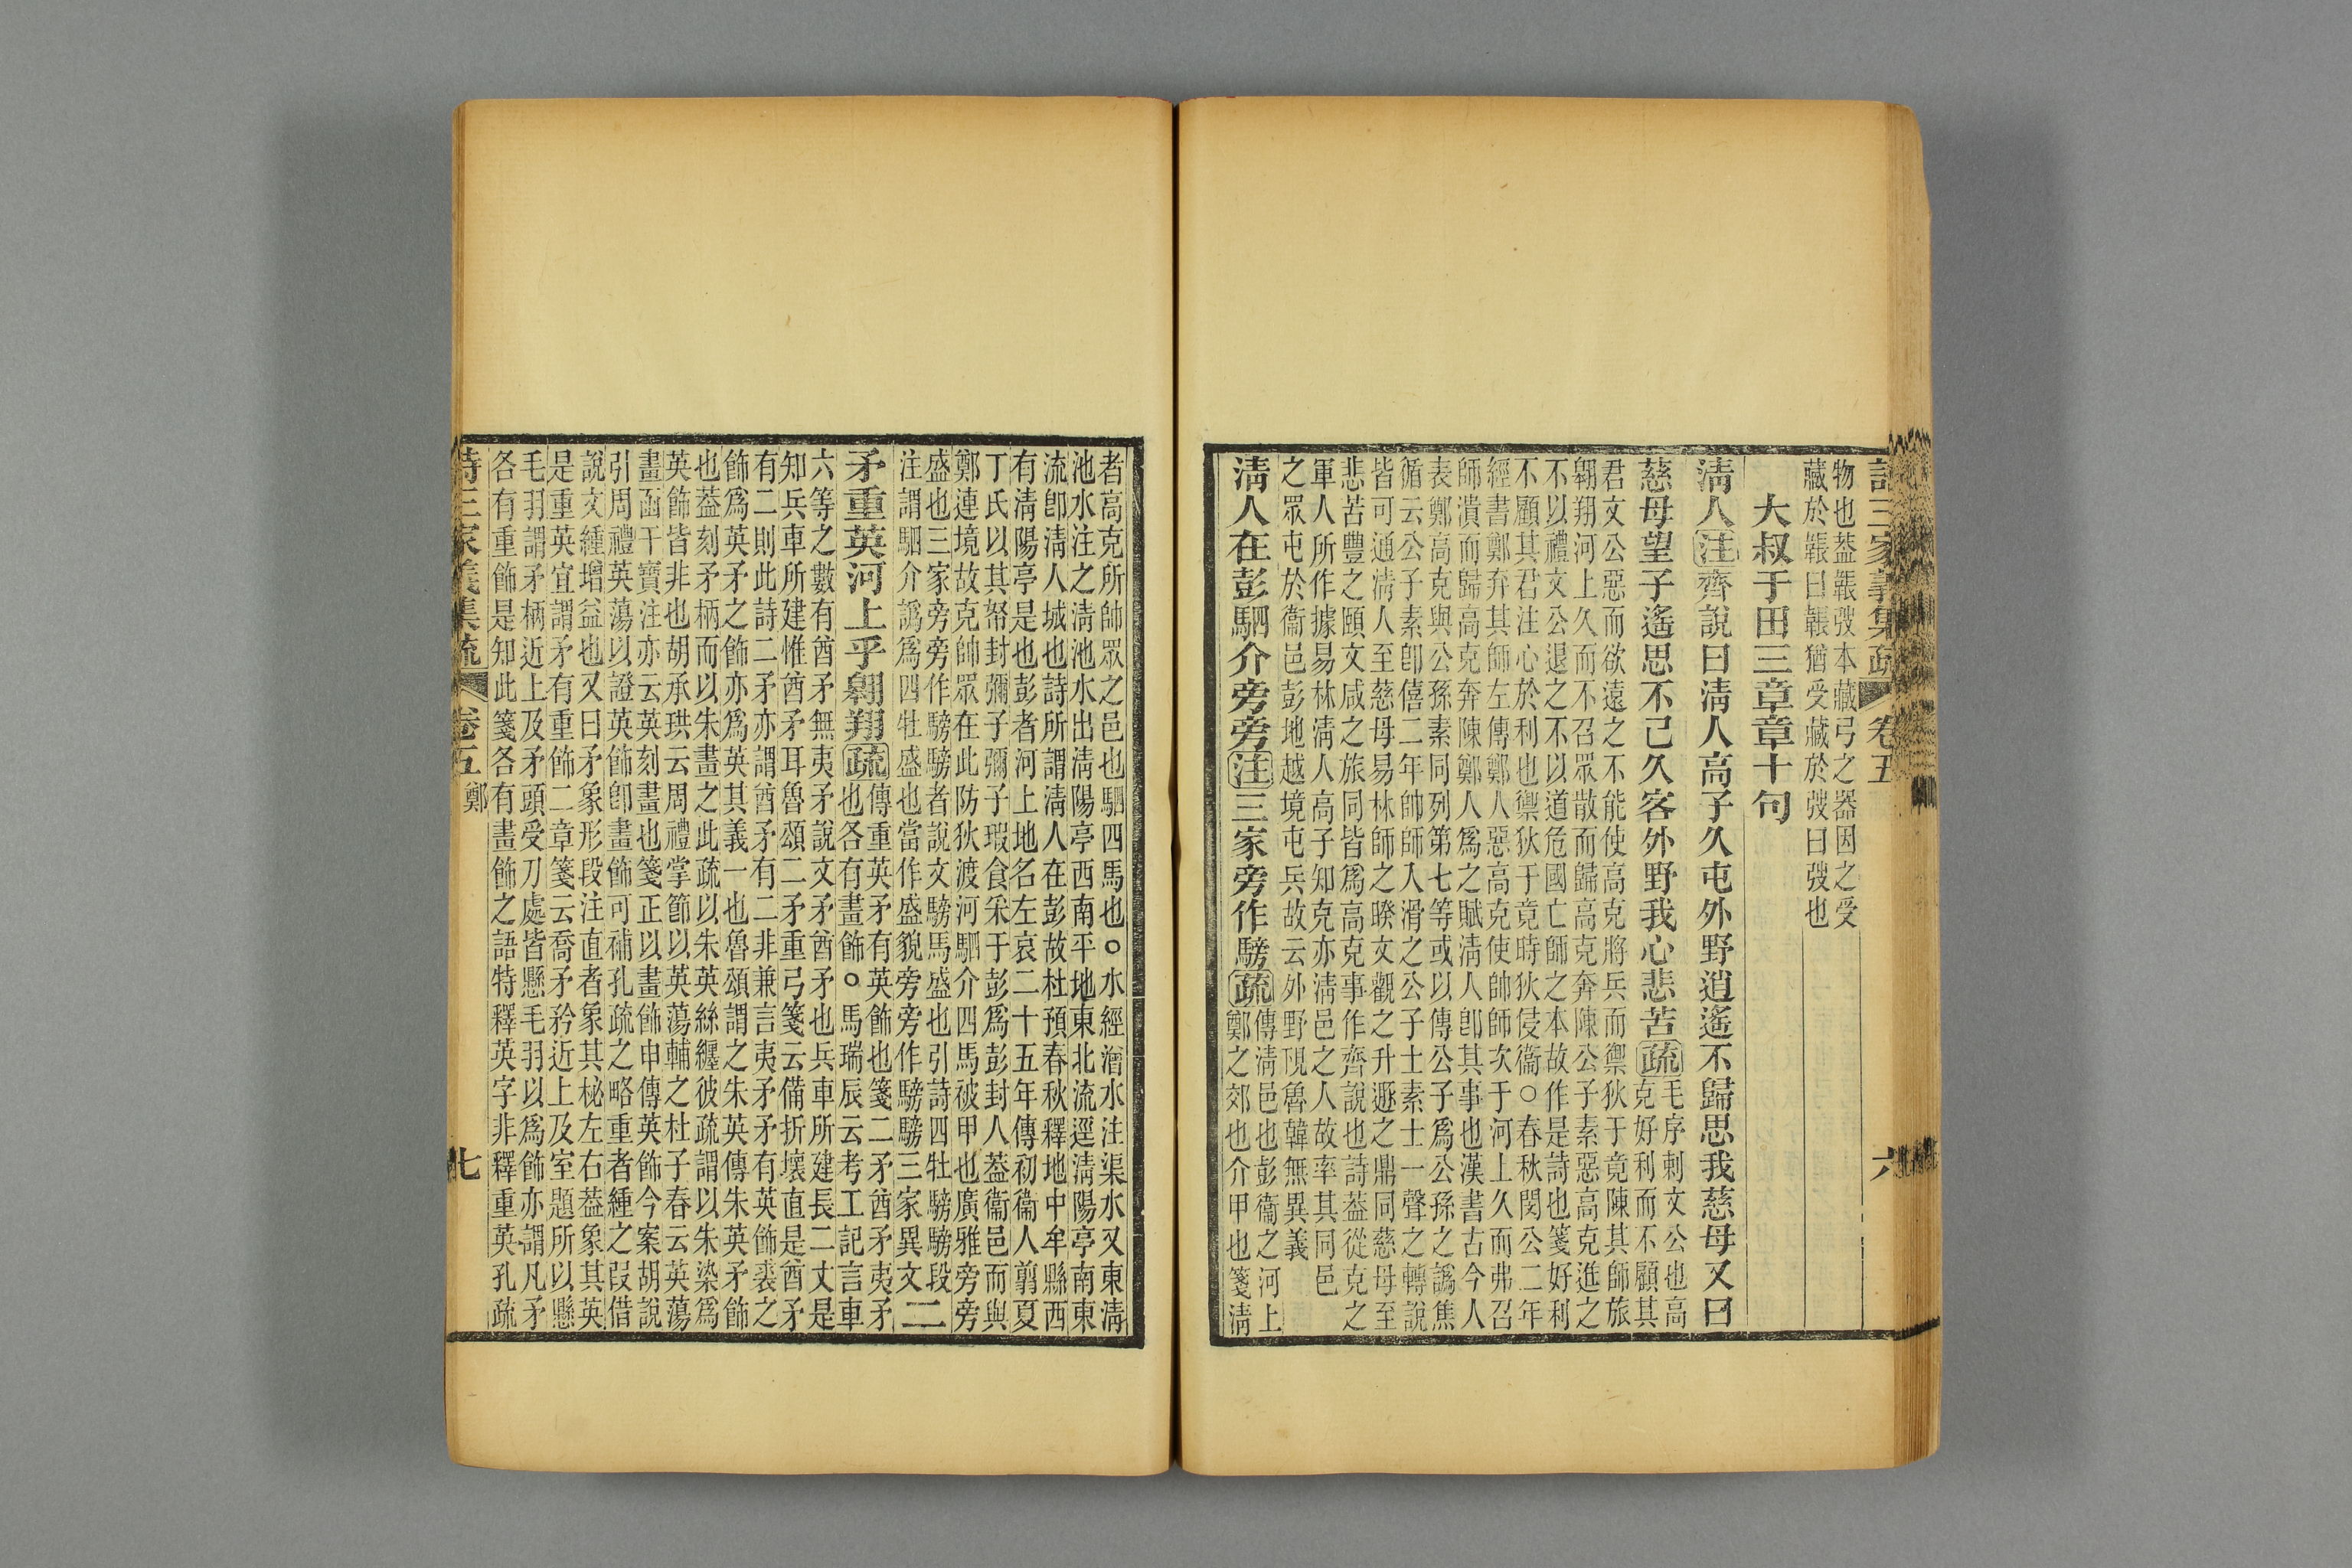 詩三家義集疏 卷五 六
物也葢韔弢本藏弓之器因之受
藏於韔曰韔猶受藏於弢曰弢也
大叔于田三章章十句
淸人注齊說曰淸人高子久屯外野逍遙不歸思我慈母又曰
慈母望子遙思不已久客外野我心悲苦疏
毛序刺文公也高
克好利而不顧其
君文公惡而欲遠之不能使高克將兵而禦狄于竟陳其師旅
翱翔河上久而不召眾散而歸高克奔陳公子素惡高克進之
不以禮文公退之不以道危國亡師之本故作是詩也箋好利
不顧其君注心於利也禦狄于竟時狄侵衞○春秋閔公二年
經書鄭弃其師左傳鄭人惡高克使帥師次于河上久而弗召
師潰而歸高克奔陳鄭人爲之賦淸人卽其事也漢書古今人
表鄭高克與公孫素同列第七等或以傳公子爲公孫之譌焦
循云公子素卽僖二年帥師入滑之公子士素士一聲之轉說
皆可通淸人至慈母易林師之睽文觀之升遯之鼎同慈母至
悲苦豐之頤文咸之旅同皆爲高克事作齊說也詩葢從克之
軍人所作據易林淸人高子知克亦淸邑之人故率其同邑
之眾屯於衞邑彭地越境屯兵故云外野現魯韓無異義
淸人在彭駟介旁旁注三家旁作騯疏
傳淸邑也彭衞之河上
鄭之郊也介甲也箋淸
者高克所帥眾之邑也駟四馬也○水經潧水注渠水又東淸
池水注之淸池水出淸陽亭西南平地東北流逕淸陽亭南東
流卽淸人城也詩所謂淸人在彭故杜預春秋釋地中牟縣西
有淸陽亭是也彭者河上地名左哀二十五年傳初衞人翦夏
丁氏以其帑封彌子彌子瑕食采于彭爲彭封人葢衞邑而與
鄭連境故克帥眾在此防狄渡河駟介四馬被甲也廣雅旁旁
盛也三家旁旁作騯騯者說文騯馬盛也引詩四牡騯騯段
注謂駟介譌爲四牡盛也當作盛貌旁旁作騯騯三家異文二
矛重英河上乎翱翔疏
傳重英矛有英飾也箋二矛酋矛夷矛
也各有畫飾○馬瑞辰云考工記言車
六等之數有酋矛無夷矛說文矛酋矛也兵車所建長二丈是
知兵車所建惟酋矛耳魯頌二矛重弓箋云備折壞直是酋矛
有二則此詩二矛亦謂酋矛有二非兼言夷矛矛有英飾裘之
飾爲英矛之飾亦爲英其義一也魯頌謂之朱英傳朱英矛飾
也葢刻矛柄而以朱畫之此疏以朱英絲纏彼疏謂以朱染爲
英飾皆非也胡承珙云周禮掌節以英蕩輔之杜子春云英蕩
畫函干寶注亦云英刻畫也箋正以畫飾申傳英飾今案胡說
引周禮英蕩以證英飾卽畫飾可補孔疏之略重者緟之叚借
說文緟增益也又曰矛象形段注直者象其柲左右葢象其英
是重英宜謂矛有重飾二章箋云喬矛矜近上及室題所以懸
毛羽謂矛柄近上及矛頭受刀處皆懸毛羽以爲飾亦謂凡矛
各有重飾是知此箋各有畫飾之語特釋英字非釋重英孔疏
詩三家義集疏 卷五 鄭 七